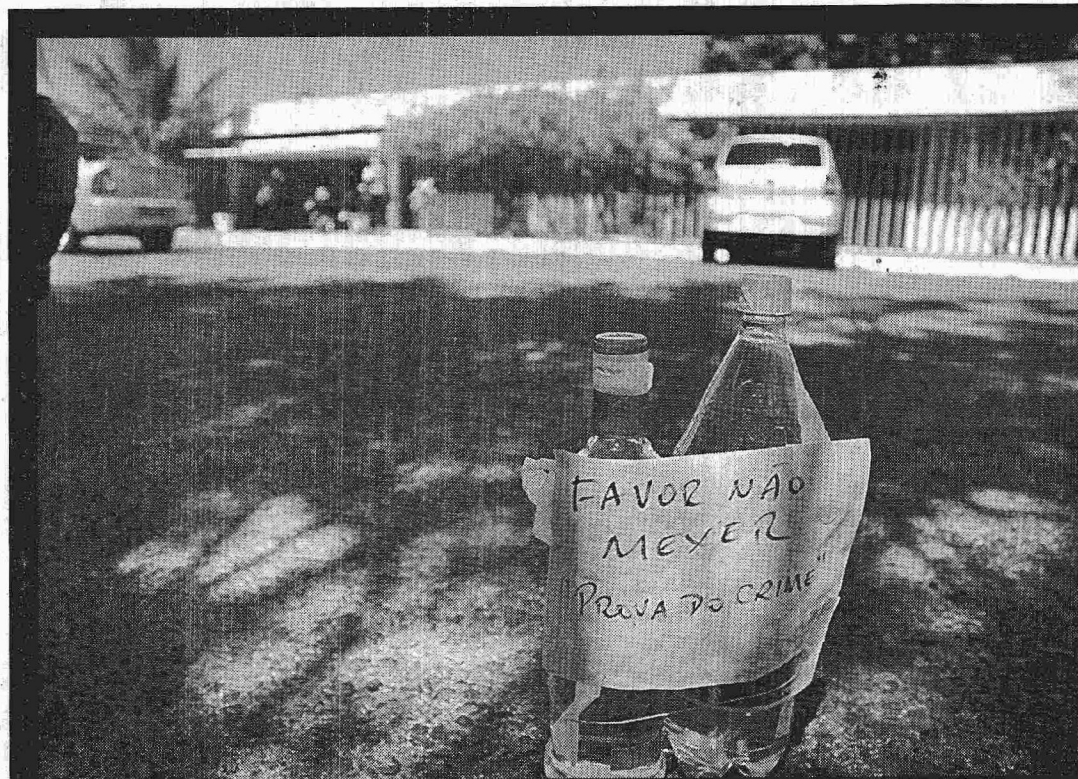 FAVOR NÃO
MEXER
"PROVA DO CRIME"